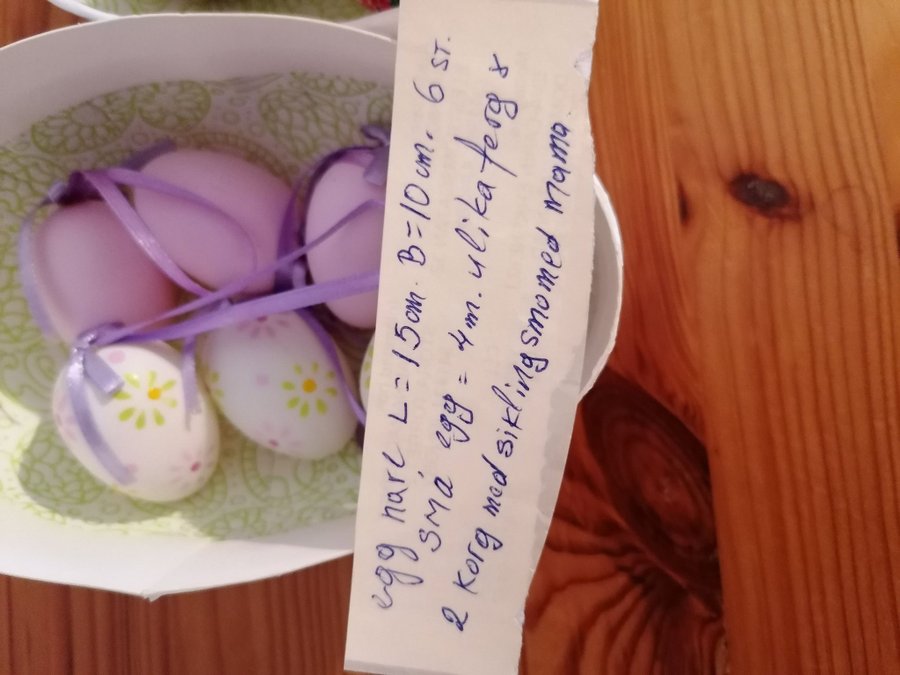 egg hare L = 15cm. B=10 cm. 6 ST.
SMÅ egg = 4m. ulika ferg 8
2 korg med siklingsmomed mama.